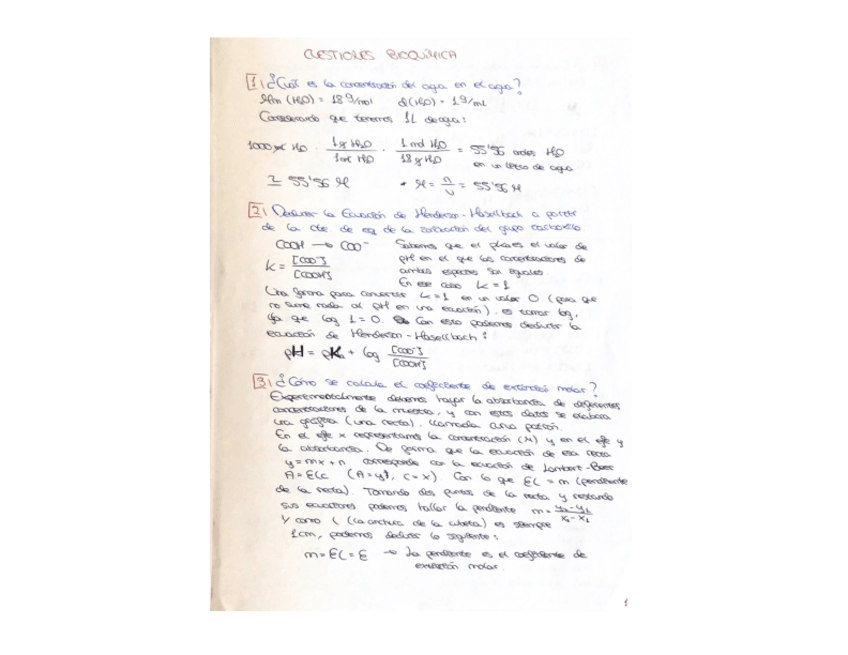 CUESTIONES BIOQUÍMICA
1 ¿Cuál es la concentración del agua en el agua?
Mm (H₂O) = 18 g/mol d(H₂O) = 1 g/mL
Considerando que tenemos 1L de agua:
1000 mL H₂O · 1g H₂O / 1mL H₂O · 1 mol H₂O / 18 g H₂O = 55'56 moles H₂O
en un litro de agua
≃ 55'56 M • M = n/V = 55'56 M
2 Deducir la Ecuación de Henderson-Hasselbach a partir
de la cte de eq de la ionización del grupo carboxilo
COOH → COO⁻ Sabemos que el pka es el valor de
pH en el que las concentraciones de
K = [COO⁻] / [COOH] ambas especies son iguales.
En ese caso K = 1
Una forma para convertir K = 1 en un valor 0 (para que
no sume nada al pH en una ecuación), es tomar log,
ya que log 1 = 0. Con esto podemos deducir la
ecuación de Henderson-Hasselbach:
pH = pKa + log [COO⁻] / [COOH]
3 ¿Cómo se calcula el coeficiente de extinción molar?
Experimentalmente debemos hayar la absorbancia de diferentes
concentraciones de la muestra, y con estos datos se elabora
una gráfica (una recta), llamada curva patrón.
En el eje x representamos la concentración (M) y en el eje y
la absorbancia. De forma que la ecuación de esa recta
y = mx + n corresponde con la ecuación de Lambert-Beer
A = Ɛlc (A = y, c = x). Con lo que Ɛl = m (pendiente
de la recta). Tomando dos puntos de la recta y restando
sus ecuaciones podemos hallar la pendiente m = y₂ - y₁ / x₂ - x₁
Y como l (la anchura de la cubeta) es siempre
1cm, podemos deducir lo siguiente:
m = Ɛl = Ɛ → La pendiente es el coeficiente de
extinción molar.
1